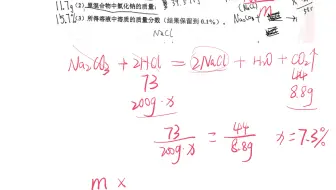 11.7g (2) 原混合物中氯化钠的质量;
15.7% (3) 所得溶液中溶质的质量分数 (结果保留到 0.1%).
NaCl
Na₂CO₃ + 2HCl = 2NaCl + H₂O + CO₂↑
73 44
200g·x 8.8g
73/200g·x = 44/8.8g x=7.3%
m x